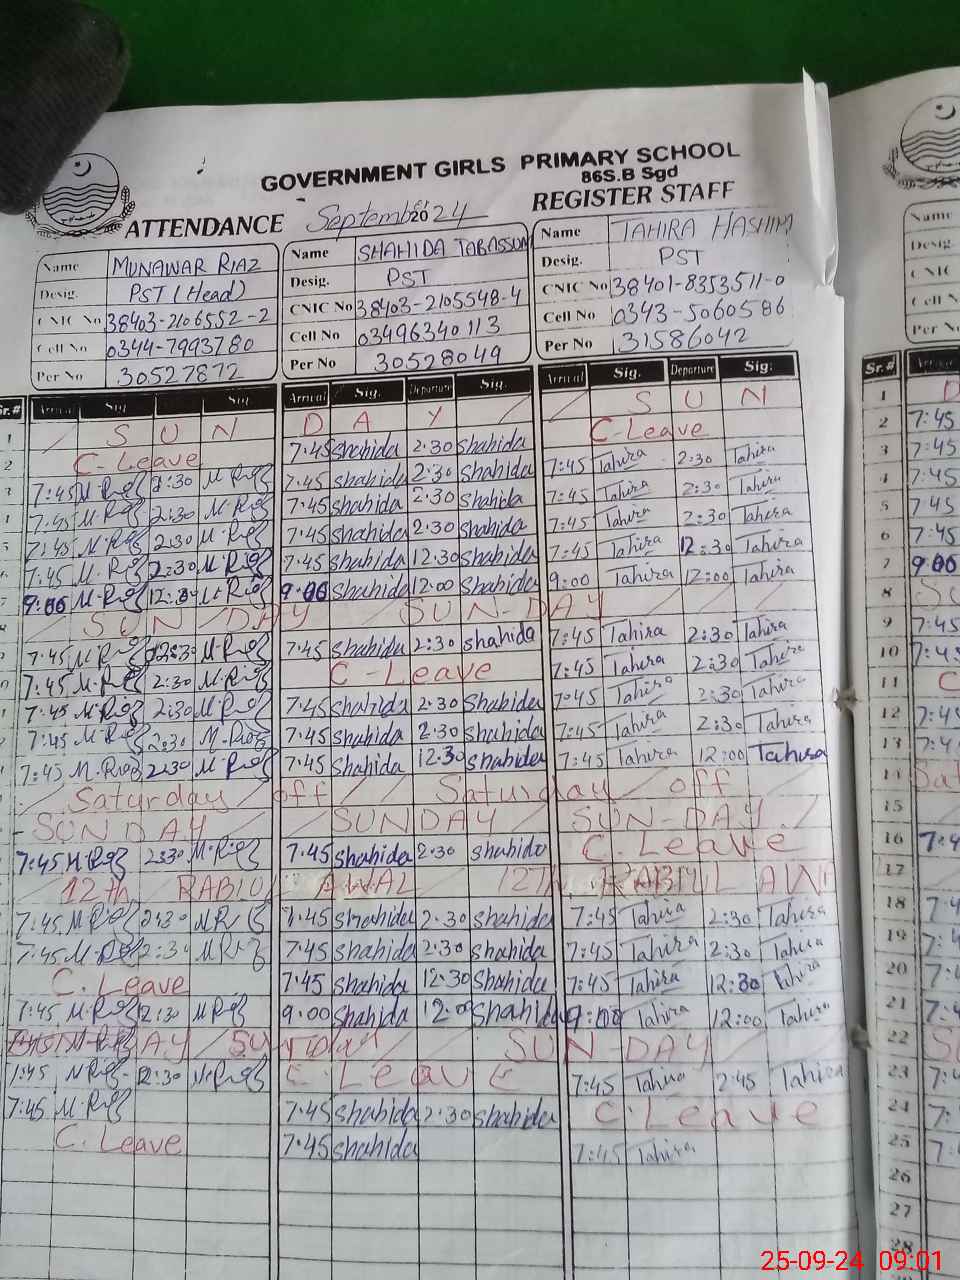 GOVERNMENT GIRLS PRIMARY SCHOOL
86S.B Sgd
ATTENDANCE September 2024 REGISTER STAFF
Name MUNAWAR RIAZ Name SHAHIDA TABASSUM Name TAHIRA HASHIM Name
Desig. PST (Head) Desig. PST Desig. PST Desig.
CNIC No 38403-2106552-2 CNIC No 38403-2105548-4 CNIC No 38401-8353511-0 CNIC
Cell No 0344-7993780 Cell No 03496340113 Cell No 0343-5060586 Cell N
Per No 30527872 Per No 30528049 Per No 31586042 Per No
Sr.# Arrival Sig. Sig. Arrival Sig. Departure Sig. Arrival Sig. Departure Sig. Sr.# Arrival
1 S U N D A Y S U N 1 D
2 C-Leave 7:45 Shahida 2:30 Shahida C-Leave 2 7:45
7:45 M.Riaz 2:30 M.Riaz 7:45 Shahida 2:30 Shahida 7:45 Tahira 2:30 Tahira 3 7:45
7:45 M.Riaz 2:30 M.Riaz 7:45 Shahida 2:30 Shahida 7:45 Tahira 2:30 Tahira 4 7:45
7:45 M.Riaz 2:30 M.Riaz 7:45 Shahida 2:30 Shahida 7:45 Tahira 2:30 Tahira 5 7:45
7:45 M.Riaz 2:30 M.Riaz 7:45 Shahida 12:30 Shahida 7:45 Tahira 12:30 Tahira 6 7:45
9:00 M.Riaz 12:00 M.Riaz 9:00 Shahida 12:00 Shahida 9:00 Tahira 12:00 Tahira 7 9:00
SUN DAY SUN-DAY 8 SU
7:45 M.Riaz 2:30 M.Riaz 7:45 Shahida 2:30 Shahida 7:45 Tahira 2:30 Tahira 9 7:45
7:45 M.Riaz 2:30 M.Riaz C-Leave 7:45 Tahira 2:30 Tahira 10 7:45
7:45 M.Riaz 2:30 M.Riaz 7:45 Shahida 2:30 Shahida 7:45 Tahira 2:30 Tahira 11 C
7:45 M.Riaz 2:30 M.Riaz 7:45 Shahida 2:30 Shahida 7:45 Tahira 2:30 Tahira 12 7:45
7:45 M.Riaz 2:30 M.Riaz 7:45 Shahida 12:30 Shahida 7:45 Tahira 12:00 Tahira 13 7:4
Saturday off Saturday off 14 Sat
SUNDAY SUNDAY SUN-DAY 15
7:45 M.Riaz 2:30 M.Riaz 7:45 Shahida 2:30 Shahida C.Leave 16 7:4
12th RABIUL AWAL 12TH RABIUL AWA 17
7:45 M.Riaz 2:30 M.Riaz 7:45 Shahida 2:30 Shahida 7:45 Tahira 2:30 Tahira 18 7:4
7:45 M.Riaz 2:30 M.Riaz 7:45 Shahida 2:30 Shahida 7:45 Tahira 2:30 Tahira 19 7:4
C. Leave 7:45 Shahida 12:30 Shahida 7:45 Tahira 12:30 Tahira 20 7:4
7:45 M.Riaz 12:30 M.Riaz 9:00 Shahida 12:00 Shahida 9:00 Tahira 12:00 Tahira 21 7:4
DAY Sunday SUN-DAY 22 S
7:45 M.Riaz 12:30 M.Riaz C-LEAVE 7:45 Tahira 2:45 Tahira 23 7:4
7:45 M.Riaz 7:45 Shahida 2:30 Shahida C.Leave 24 7:
C. Leave 7:45 Shahida 7:45 Tahira 25 7:
26
27
28
25-09-24 09:01